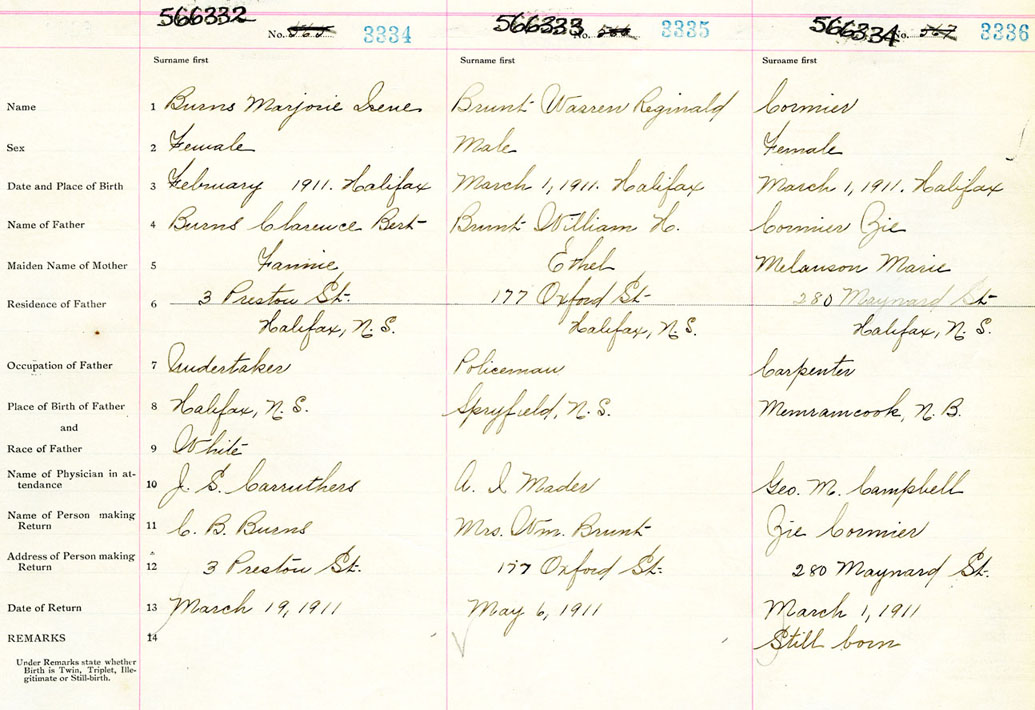 566332 566333 566334
No. 565 3334 No. 566 3335 No. 567 3336
Surname first Surname first Surname first
Name 1 Burns Marjorie Irene Brunt Warren Reginald Cormier
Sex 2 Female Male Female
Date and Place of Birth 3 February 1911. Halifax March 1, 1911. Halifax March 1, 1911. Halifax
Name of Father 4 Burns Clarence Bert Brunt William H. Cormier Zie
Maiden Name of Mother 5 Fannie Ethel Melanson Marie
Residence of Father 6 3 Preston St. 177 Oxford St 280 Maynard St
Halifax, N.S. Halifax, N.S. Halifax, N.S.
Occupation of Father 7 Undertaker Policeman Carpenter
Place of Birth of Father 8 Halifax, N.S. Spryfield, N.S. Memramcook, N.B.
and
Race of Father 9 White
Name of Physician in at-
tendance 10 J. S. Carruthers A. I Mader Geo. M. Campbell
Name of Person making
Return 11 C. B. Burns Mrs. Wm. Brunt Zie Cormier
Address of Person making
Return 12 3 Preston St. 177 Oxford St. 280 Maynard St.
Date of Return 13 March 19, 1911 May 6, 1911 March 1, 1911
REMARKS 14 Still born
Under Remarks state whether
Birth is Twin, Triplet, Ille-
gitimate or Still-birth.